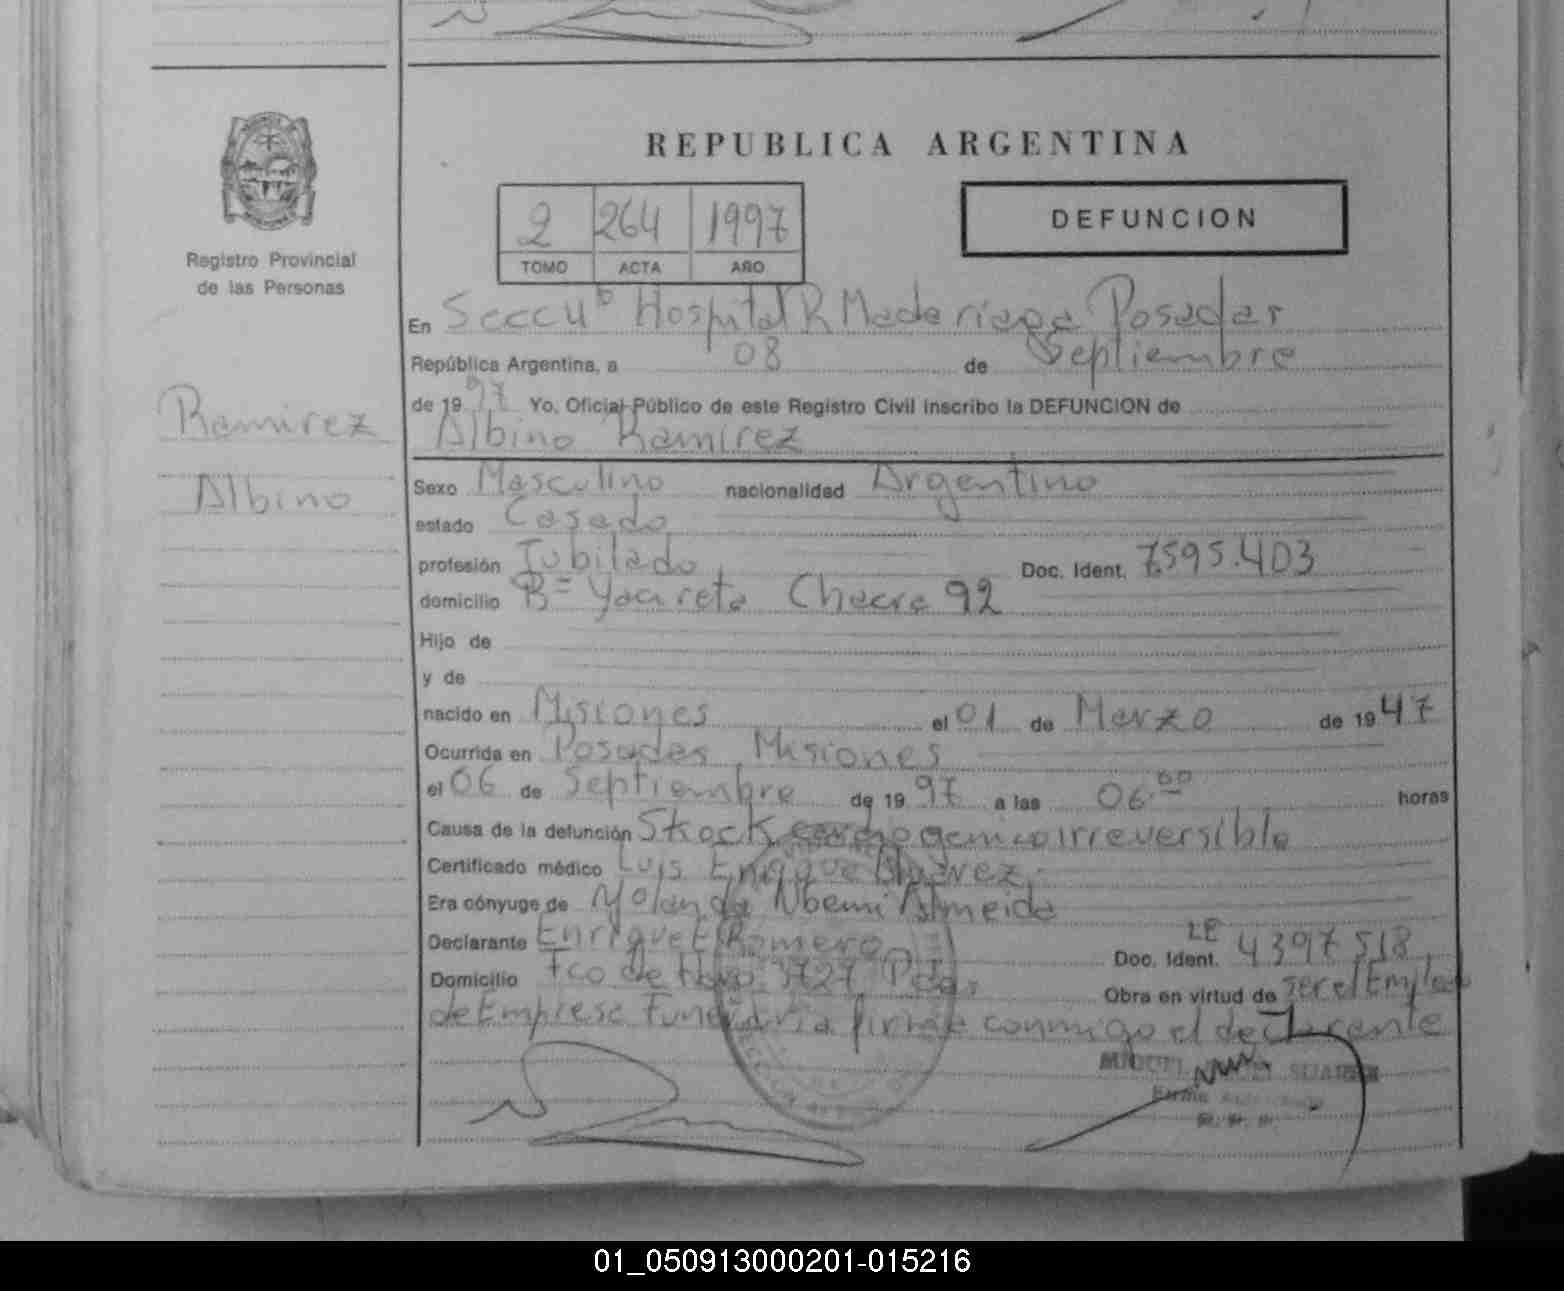 REPUBLICA ARGENTINA
2 264 1997
TOMO ACTA AÑO
DEFUNCION
Registro Provincial
de las Personas
Ramirez
Albino
En Seccu Hospital R Madariaga Posadas
República Argentina, a 08 de Septiembre
de 19 97 Yo, Oficial Público de este Registro Civil inscribo la DEFUNCION de
Albino Ramirez
Sexo Masculino nacionalidad Argentino
estado Casado
profesión Jubilado Doc. Ident. 7.595.403
domicilio Bº Yacireta Chacra 92
Hijo de
y de
nacido en Misiones el 01 de Marzo de 19 47
Ocurrida en Posadas, Misiones
el 06 de Septiembre de 19 97 a las 06.00 horas
Causa de la defunción Skock irreversible
Certificado médico Luis Enrique
Era cónyuge de Yolanda Noemi Almeida
Declarante Enrique Romero Doc. Ident. LE 4397518
Domicilio Fco de Haro 3727 Pdas, Obra en virtud de ser el Emplea
de Empresa Funeraria firma conmigo el declarante
01_050913000201-015216